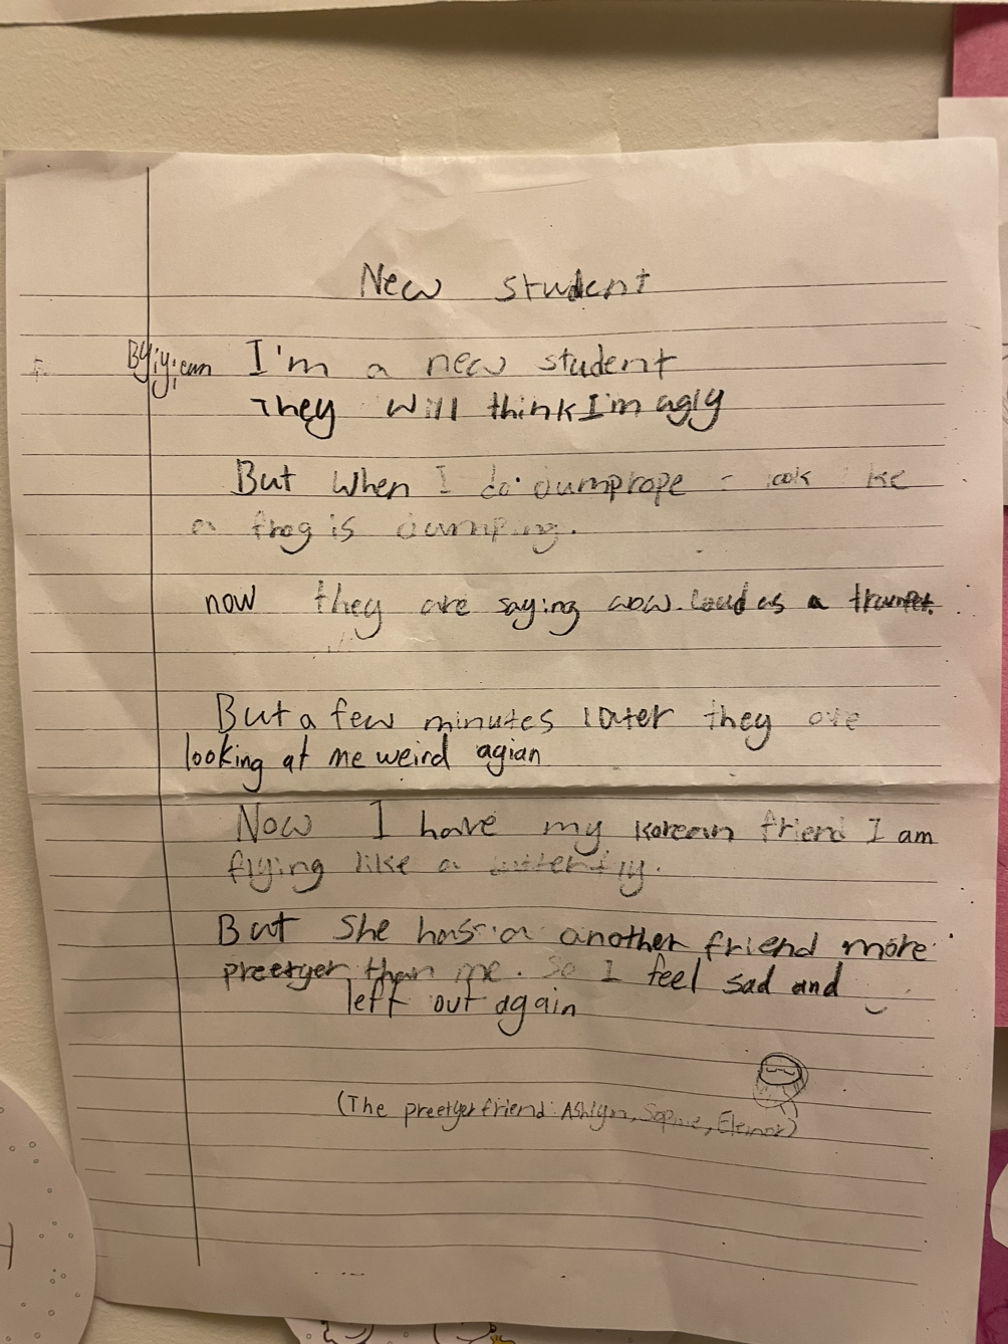 New student
By iyican I'm a new student
They will think I'm agly
But when I do Jumprope I look like
a frog is Jumping.
now they are saying wow. Loud as a trumpet.
But a few minutes later they are
looking at me weird agian
Now I have my korean friend I am
flying like a butterfly.
But She has a another friend more
preetyer than me. So I feel sad and
left out again
(The preetyer friend: Ashlyn, Sophie, Eleanor)